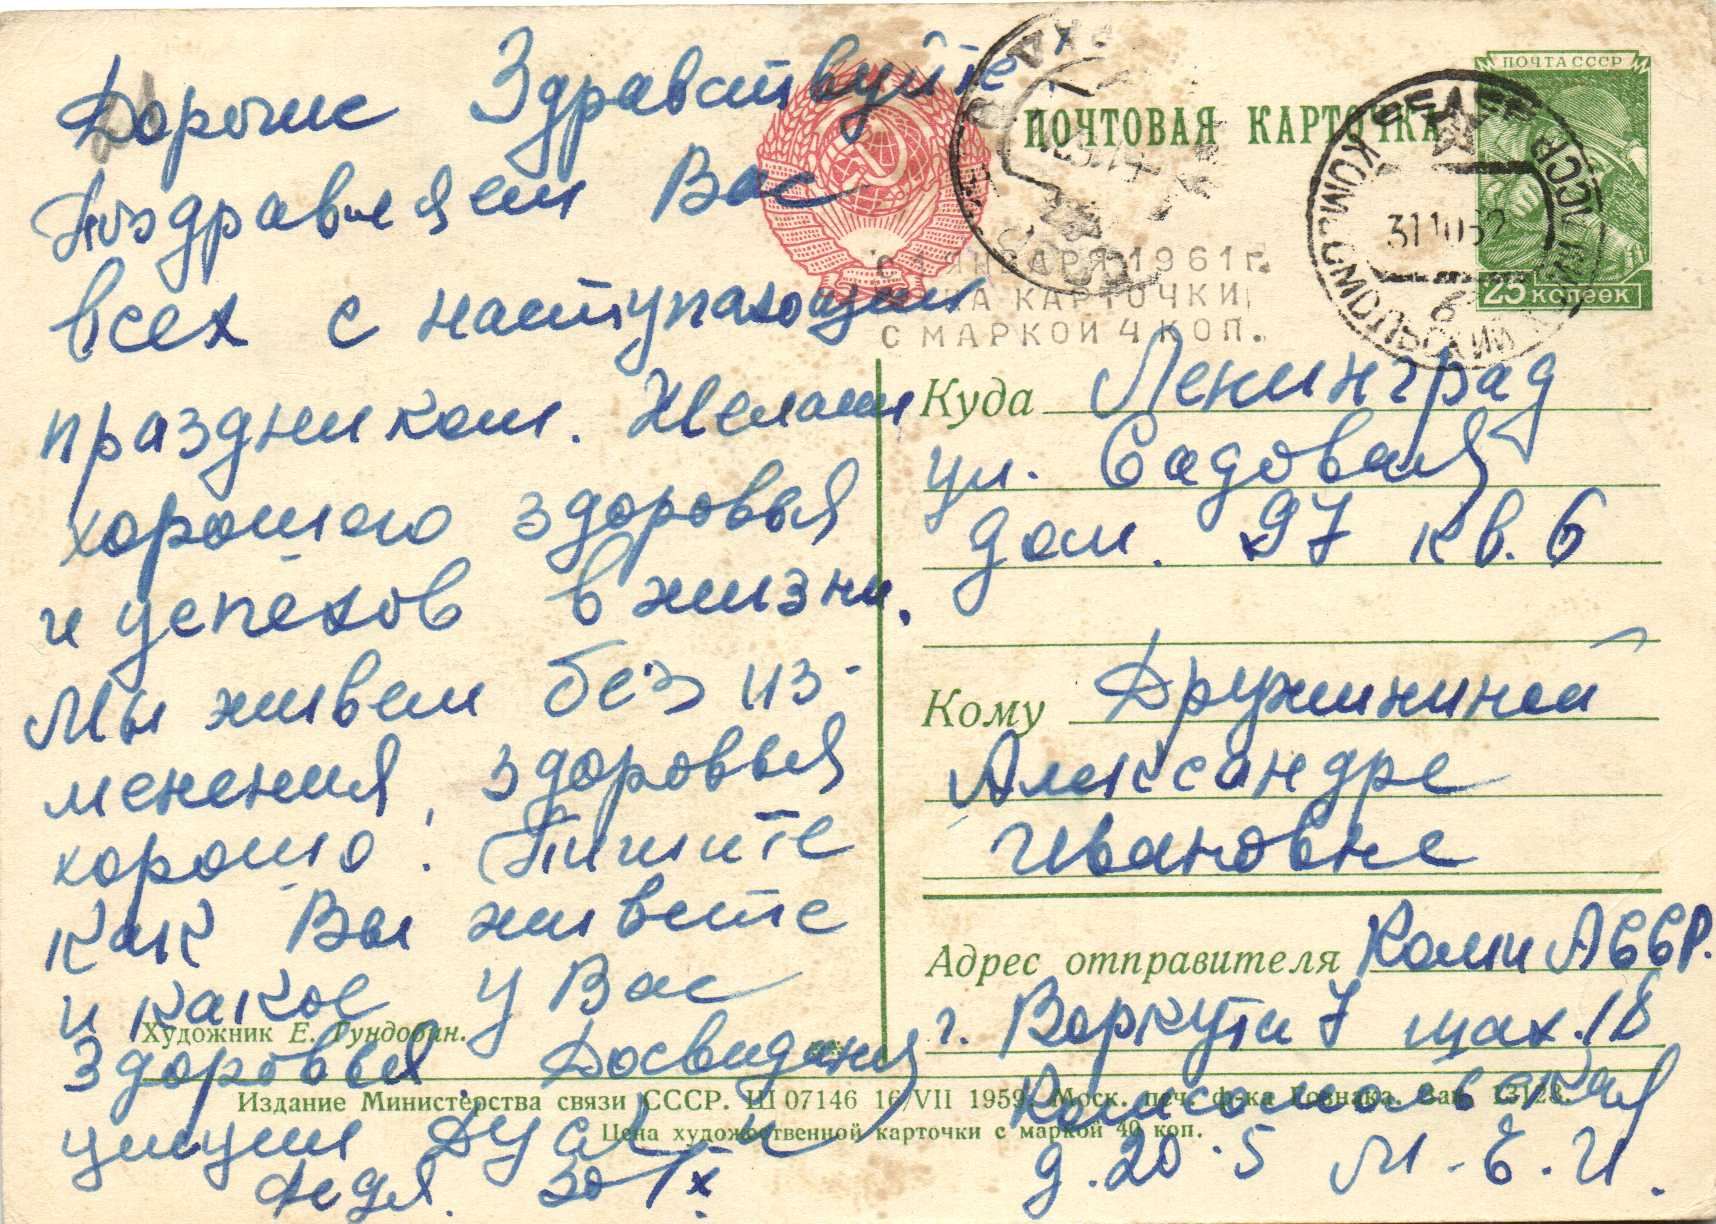 Дорогие Здравствуйте
Поздравляем Вас
всех с наступающим
праздником. Желаем
хорошего здоровья
и успехов в жизни.
Мы живем без из-
менения, здоровья
хорошо! Пишите
как Вы живете
и какое у Вас
здоровья. Досвидания
Федя. 30/X
ПОЧТОВАЯ КАРТОЧКА
ПОЧТА СССР
25 КОПЕЕК
31 10 62
КОМСОМОЛЬСКИЙ
С 1 ЯНВАРЯ 1961 г.
ЦЕНА КАРТОЧКИ
С МАРКОЙ 4 КОП.
Куда Ленинград
ул. Садовая
дом. 97 кв. 6
Кому Дружининой
Александре
Ивановне
Адрес отправителя Коми АССР.
г. Воркута 7 шах. 18
Комсомольская
д. 20-5 М. Е. И.
Художник Е. Гундобин.
Издание Министерства связи СССР. Ш 07146 16/VII 1959. Моск. печ. ф-ка Гознака. Зак. 13123.
Цена художественной карточки с маркой 40 коп.